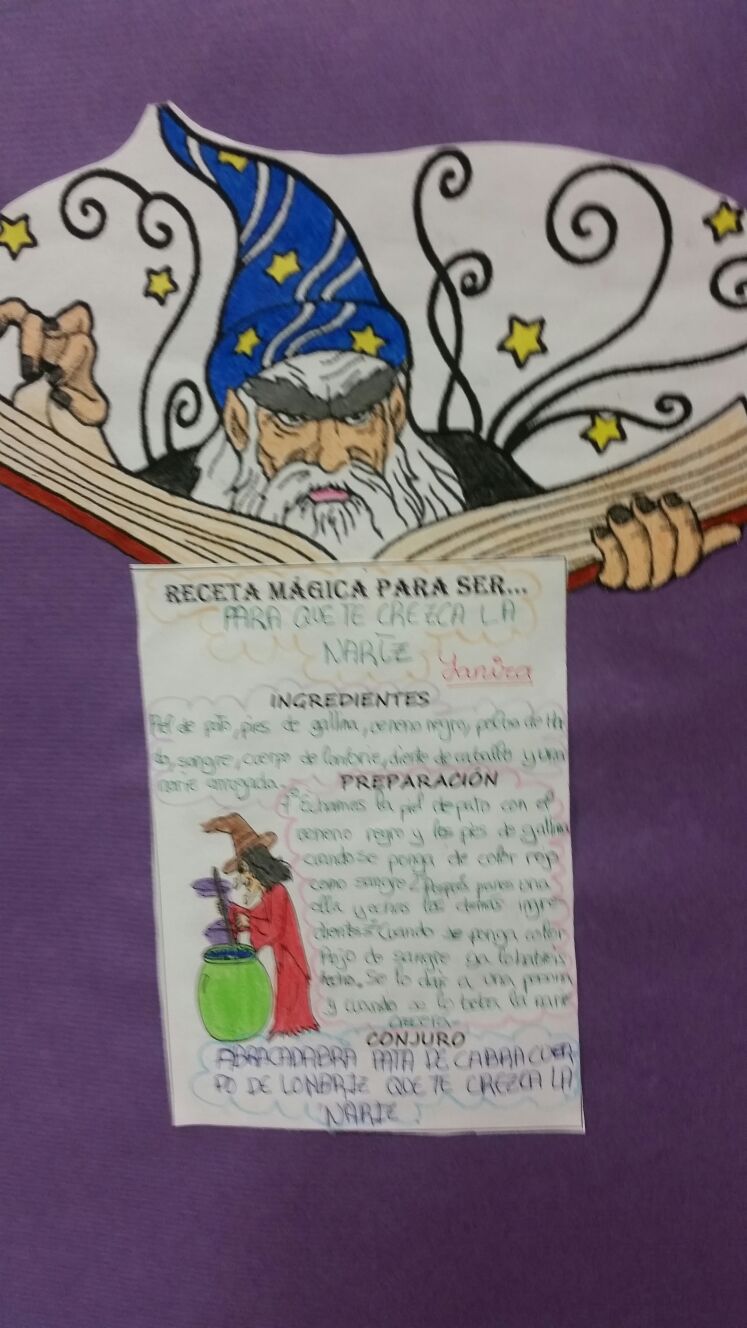 RECETA MÁGICA PARA SER...
PARA QUE TE CREZCA LA
NARIZ Yanira
INGREDIENTES
Piel de pato, pies de gallina, veneno negro,
sangre, cuerpo de lonbriz, diente de caballo y una
nariz arrugada.
PREPARACIÓN
1º Echamos la piel de pato con el
veneno negro y los pies de gallina
cuando se ponga de color rojo
como sangre 2º Después pones una
olla y echas los demas ingre
dientes 3º Cuando se ponga color
Rojo de sangre ya lo habeis
hecho. Se lo dais a una persona
y cuando se lo beba la nariz
crecera
CONJURO
ABRACADABRA PATA DE CABRA CUER
PO DE LONBRIZ QUE TE CREZCA LA
NARIZ